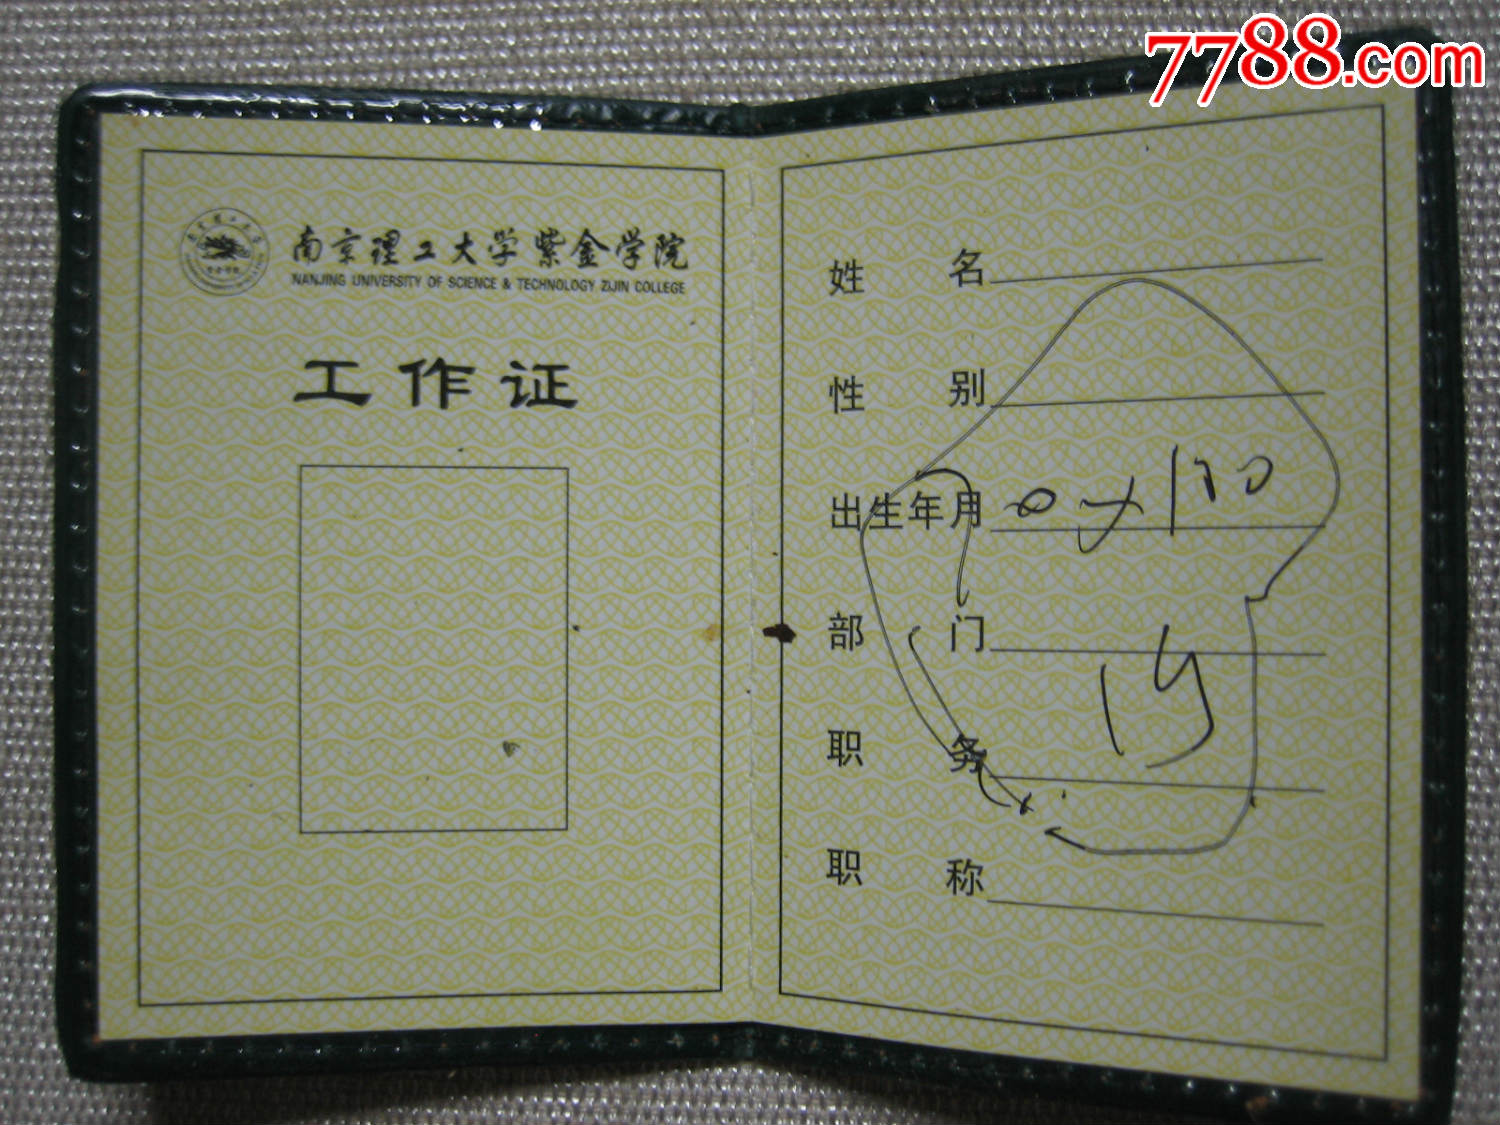 7788.com
南京理工大学紫金学院
NANJING UNIVERSITY OF SCIENCE & TECHNOLOGY ZIJIN COLLEGE
工作证
姓名
性别
出生年月
部门
职务
职称